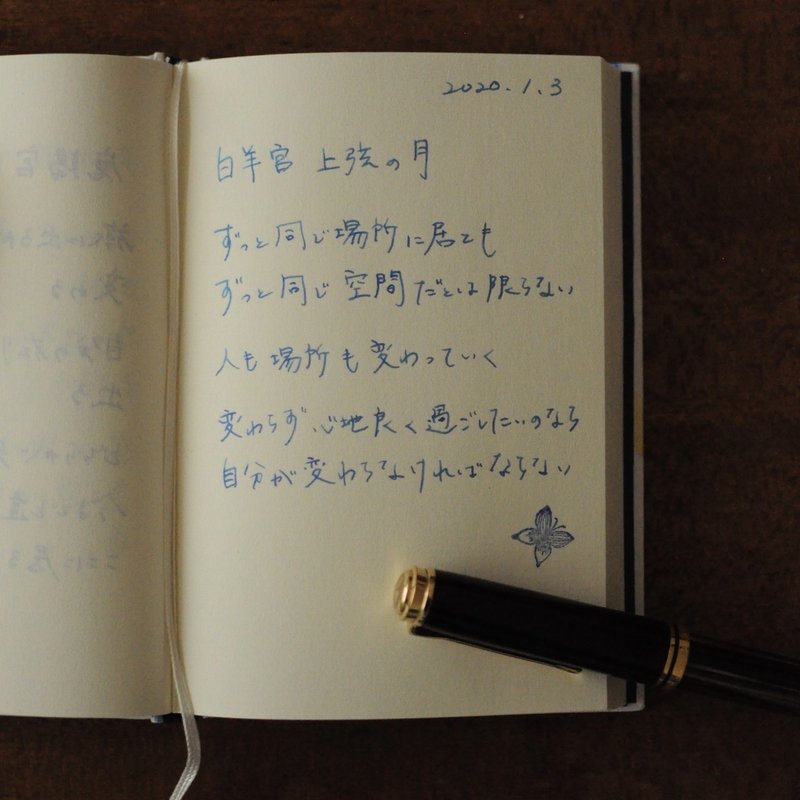 2020.1.3
白羊宮 上弦の月
ずっと同じ場所に居ても
ずっと同じ空間だとは限らない
人も場所も変わっていく
変わらず心地良く過ごしたいのなら
自分が変わらなければならない